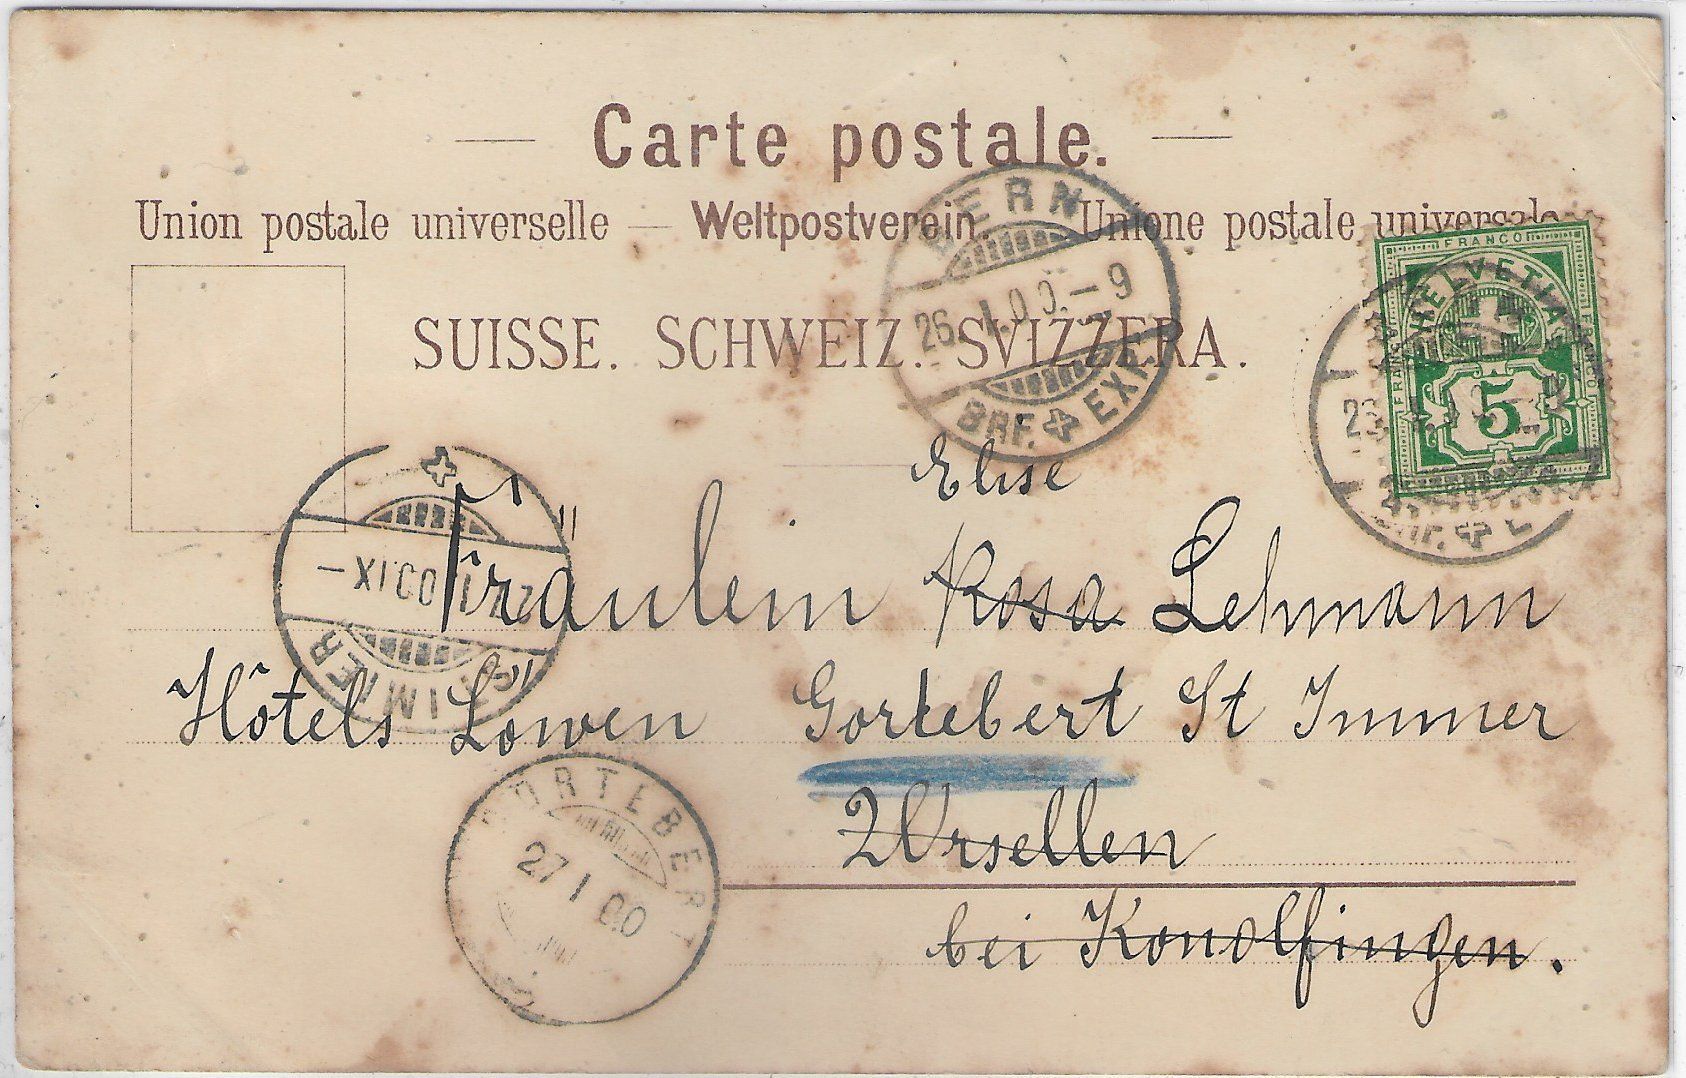 Carte postale.
Union postale universelle — Weltpostverein. Unione postale universale
SUISSE. SCHWEIZ. SVIZZERA.
BERN
26. I. 00. – 9
BRF. EXP.
FRANCO
HELVETIA
5
– XI 00.I
IMIER
Elise
Fräulein Rosa Lehmann
Hôtels Lowen Gortebert St Immer
Ursellen
bei Konolfingen.
CORTEBERT
27 I 00